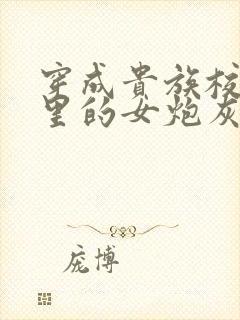 穿成貴族校
里的女炮灰
庞博